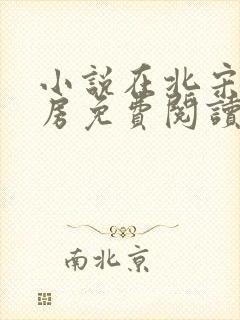 小説在北宋
房免費閱讀
南北京